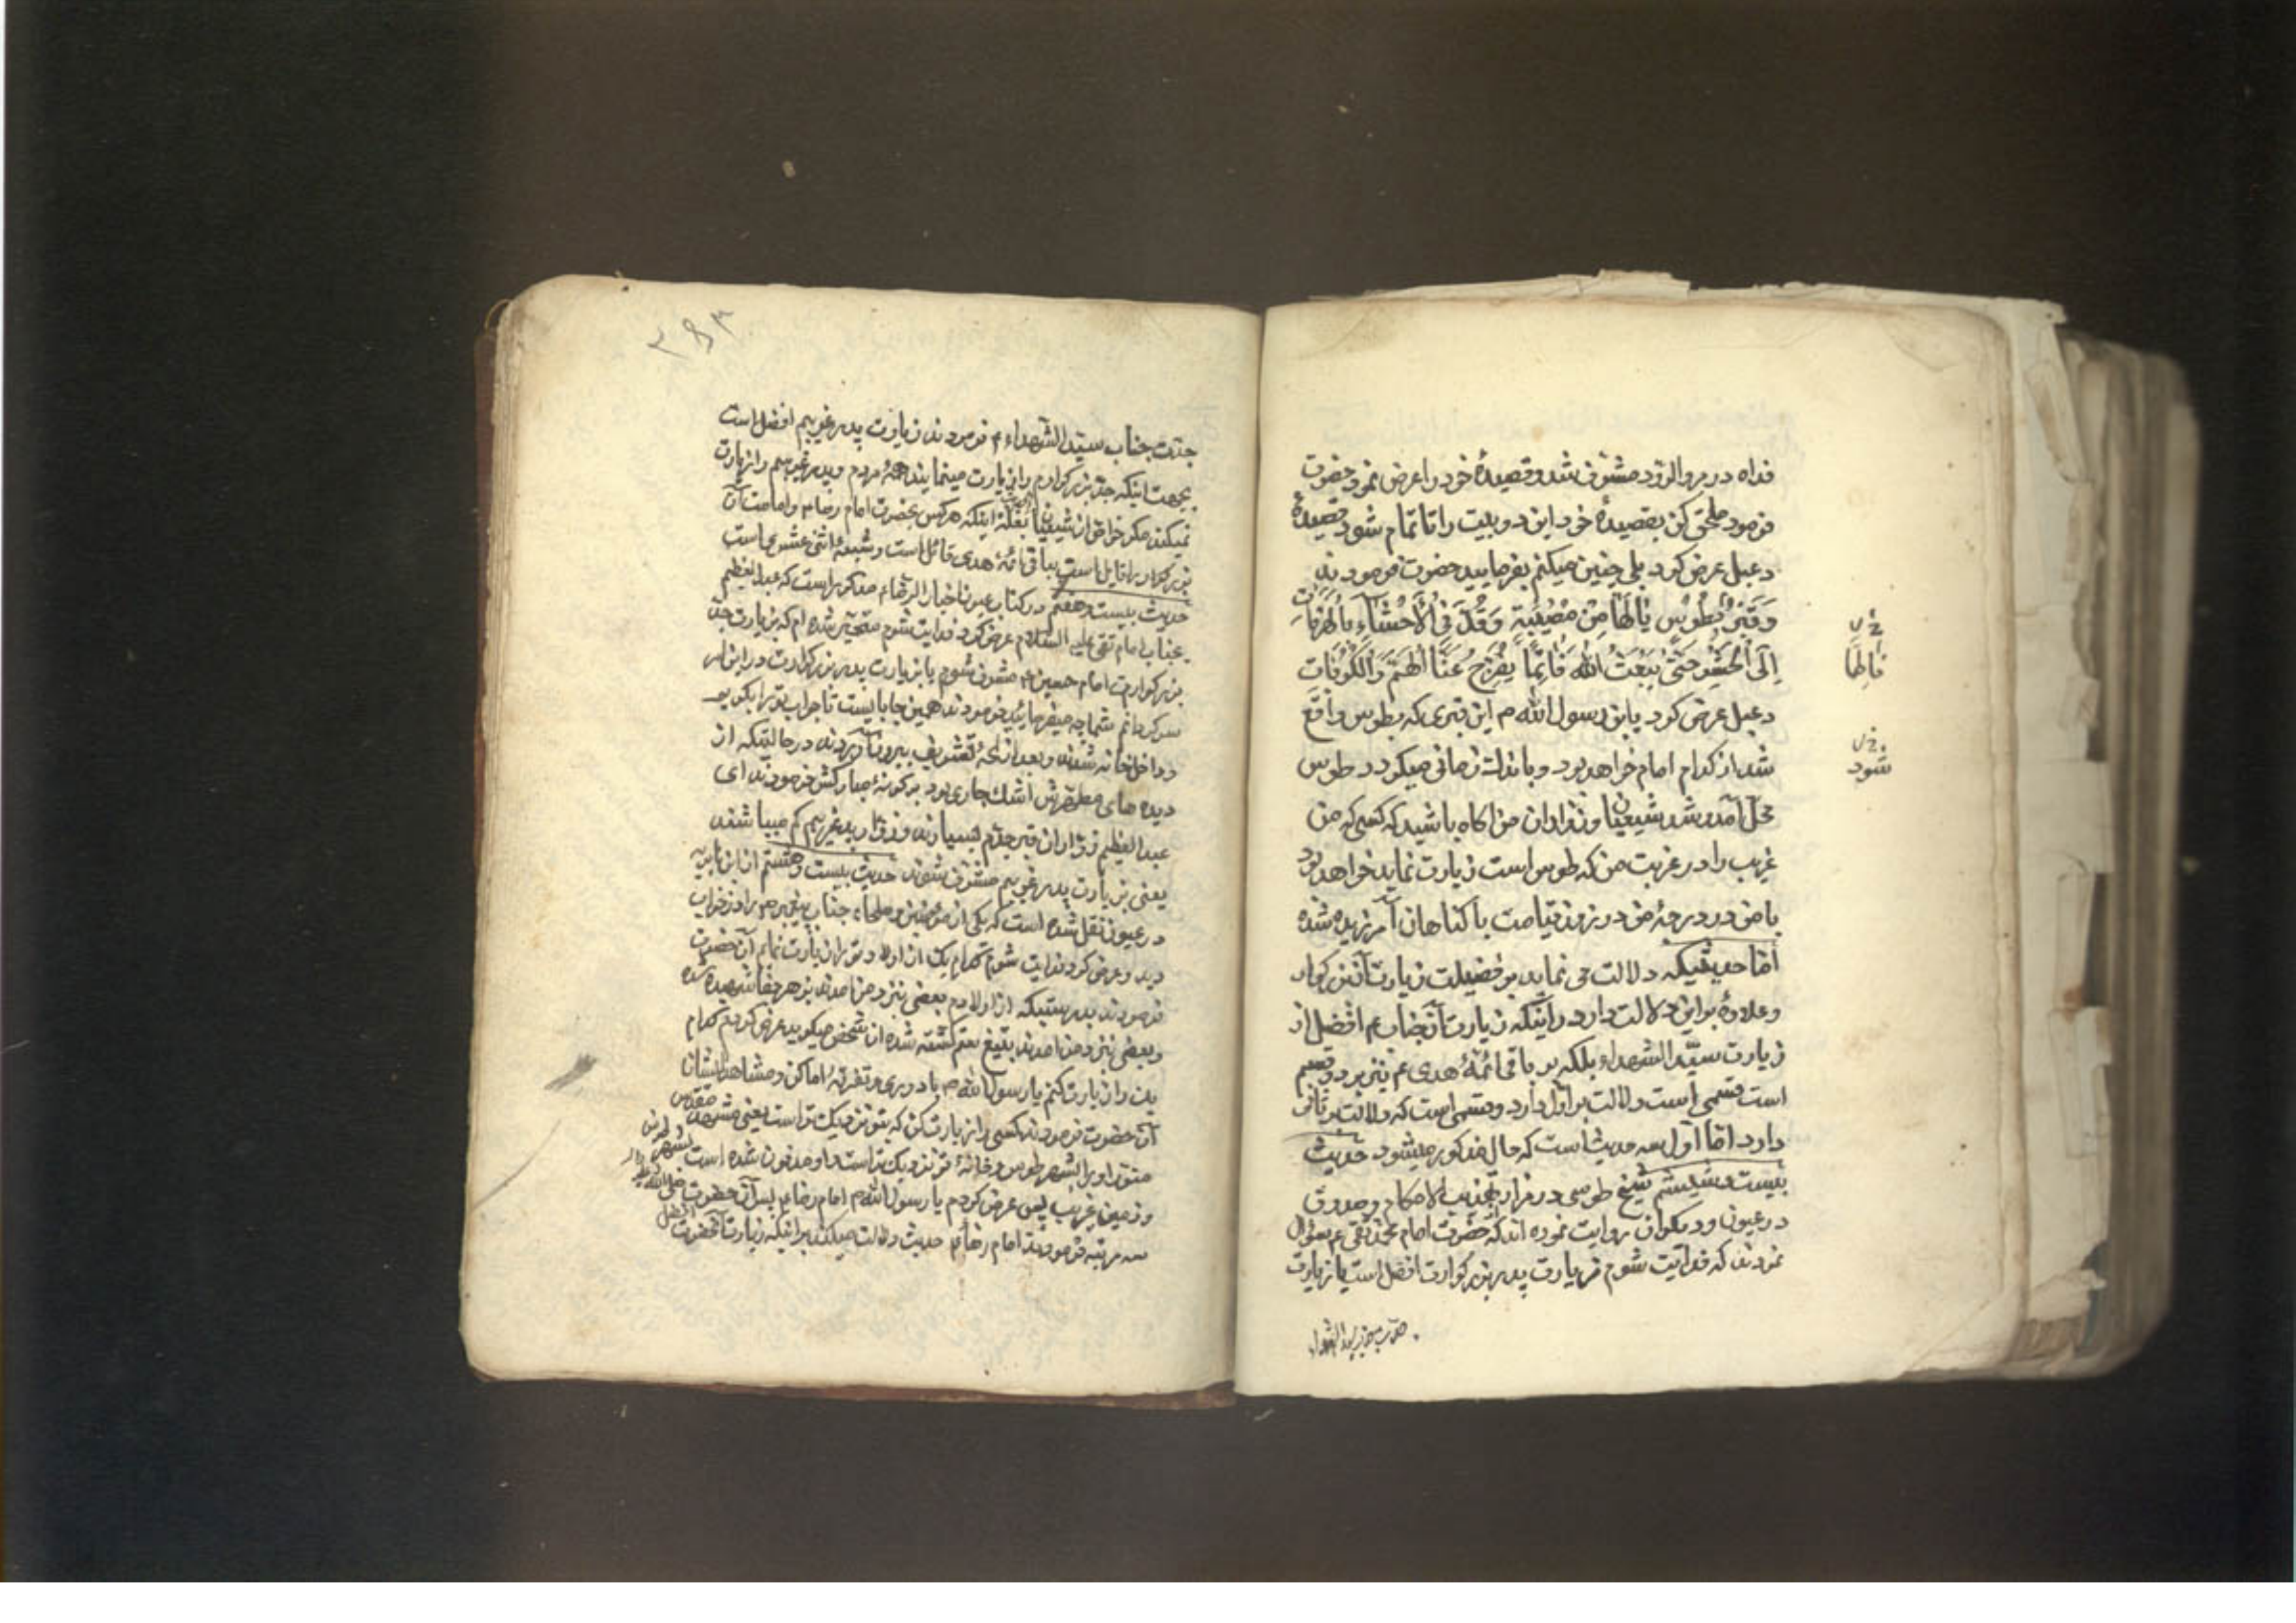 فداه در مرو الرود مشرف شد و قصیدهٔ خود را عرض نمود حضرت
فرمود ملحق کن بقصیدهٔ خود این دو بیت را تا تمام شود قصیدهٔ
دعبل عرض کرد بلی چنین میکنم بفرمایید حضرت فرمودند
وَقَبرٌ بِطُوسٍ یٰا لَهٰا مِنْ مُصیبَةٍ
إلَی الحَشرِ حَتّیٰ یَبعَثَ اللّٰه قٰائِمًا یُفَرِّجُ عَنَّا الهَمَّ وَالکُرُبٰاتِ
دعبل عرض کرد یابن رسول الله م این قبری که بطوس واقع
شد از کدام امام خواهد بود و باندک زمانی میکردد طوس
محل آمد و شد شیعیان و زواران من اکاه باشید که کسی که من
غریب را در غربت من که طوس است زیارت نماید خواهد بود
با من در درجهٔ من در روز قیامت با کناهان آمرزیده شده
امّا حدیثیکه دلالت می نماید بر فضیلت زیارت آن بزرکوار
و علاوه بر این دلالت دارد بر اینکه زیارت آنجناب ع افضل از
زیارت سیّد الشهداء بلکه بر باقی ائمّهٔ هدی ع نیز بر دو قسم
است قسمی است دلالت بر اوّل دارد و قسمی است که دلالت بر ثانی
دارد امّا اوّل سه حدیث است که حال مذکور میشود حدیث
بیست و ششم شیخ طوسی در مزار تهذیب الاحکام و صدوق
در عیون و دیکران روایت نموده اند که حضرت امام محمد تقی ع سؤال
نمودند که فدایت شوم زیارت پدر بزرکوارت افضل است یا زیارت
شود
۳۵۳
جدّت جناب سیّد الشهداء ع فرمودند زیارت پدر غریبم افضل است
بجهت اینکه جدّ بزرکوارم را زیارت مینمایند همهٔ مردم و پدر غریبم را زیارت
نمیکند مکر خواصّ از شیعیان اینکه هرکس بحضرت امام رضا ع و امامت آن
بزرکوار را قایل است بباقی ائمّهٔ هدی قائل است و شیعهٔ اثنی عشری است
حدیث بیست و هفتم در کتاب عیون اخبار الرّضا ع مذکور است که عبد العظیم
بجناب امام تقی علیه السّلام عرض کرد فدایت شوم متحیّر شده ام که بزیارت جدّ
بزرکوارت امام حسین ع مشرف شوم یا بزیارت پدر بزرکوارت و در این امر
سرکردانم شما چه میفرمایید فرمودند همین جا بایست تا جواب تو را بکویم
داخل خانه شدند و بعد از لحهٔ تشریف بیرون آوردند در حالتیکه از
دیده های مطهّرش اشک جاری بود بر کونهٔ مبارکش فرمودند ای
عبد العظیم زوّاران قبر جدّم بسیارند و زوّار پدر غریبم کم میباشند
یعنی بزیارت پدر غریبم مشرّف شوند حدیث بیست و هشتم از ابن بابویه
در عیون نقل شده است که یکی از مؤمنین و صلحاء جناب پیغمبر ص را در خواب
دید و عرض کرد فدایت شوم کدام یک از اولاد تو را زیارت نمایم آن حضرت
فرمودند بدرستیکه از اولادم بعضی نزد من آمدند بزهر جفا شهید شده
و بعضی نزد من آمدند بتیغ ستم کشته شده آن شخص میکوید عرض کردم کدام
یک را زیارت کنم یا رسول الله ص با دوری و تفرقهٔ اماکن و مشاهد ایشان
آن حضرت فرمودند کسی را زیارت کن که بتو نزدیک تر است یعنی مشهد مقدّس
منوّر او بشهر طوس و خانهٔ تو نزدیک تر است و او مدفون شده است
و زمین غربت پس عرض کردم یا رسول الله م امام رضا ع پس آن حضرت
سه مرتبه فرمودند امام رضا ع حدیث دلالت میکند بر اینکه زیارت آنحضرت